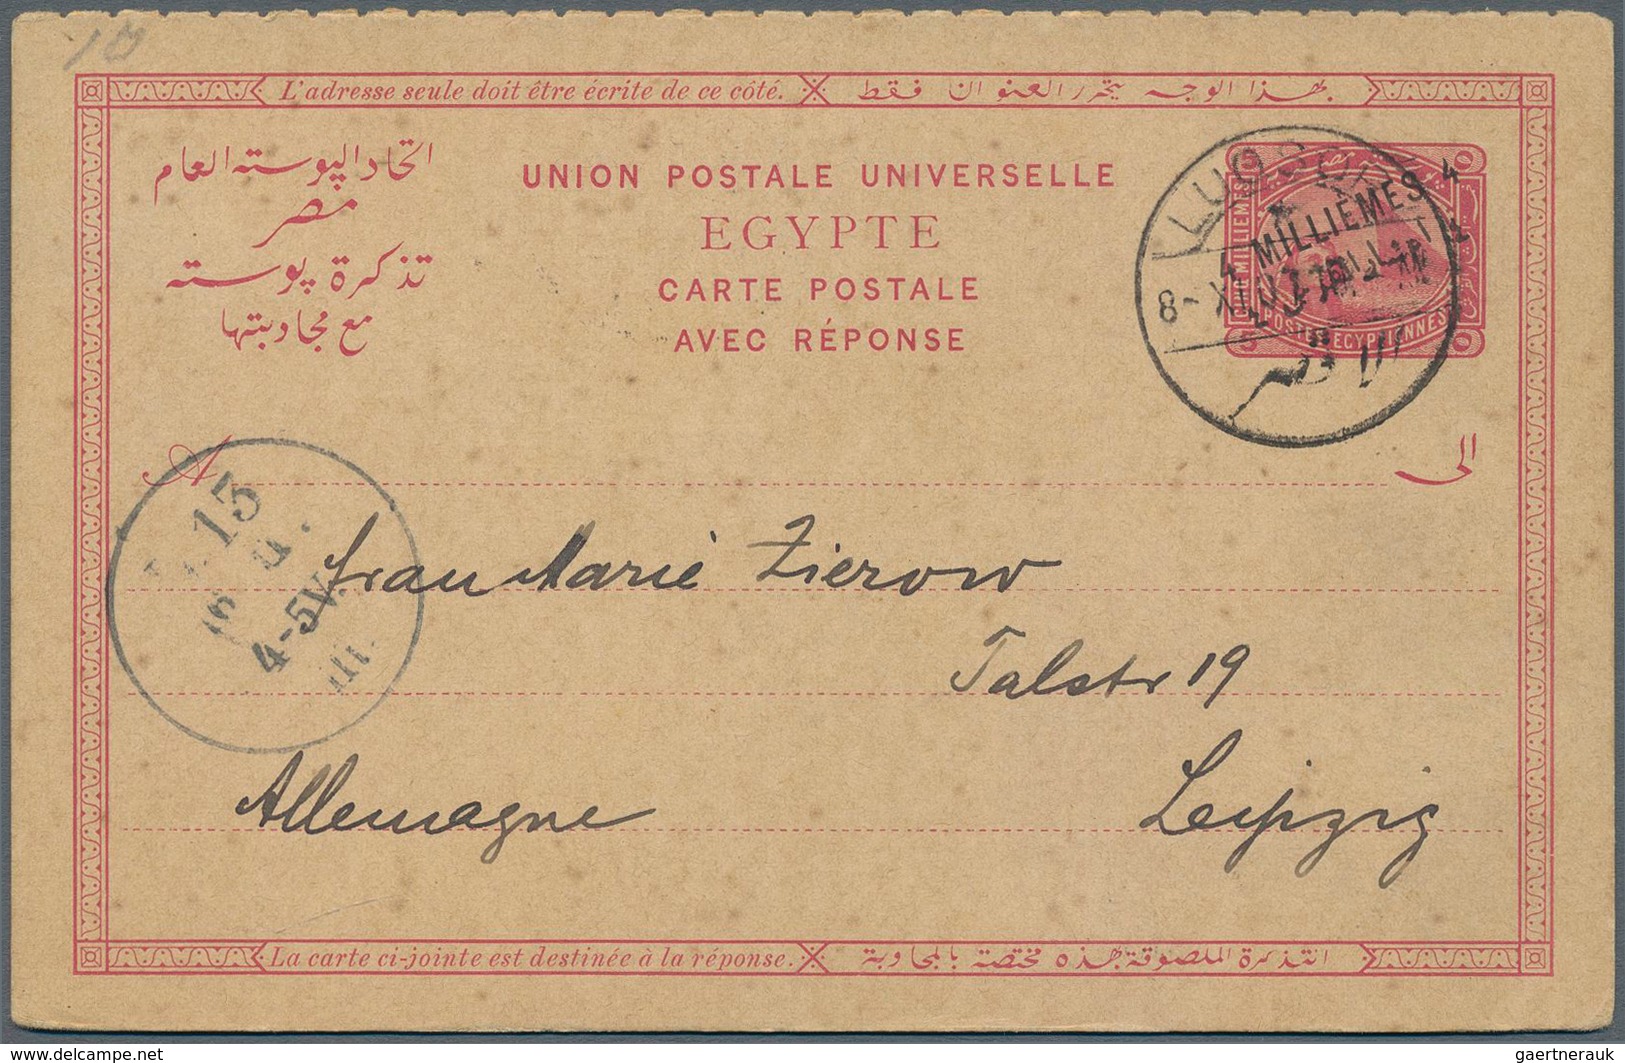 10
L'adresse seule doit être écrite de ce côté.
بهذا الوجه يتحرر العنوان فقط
اتحاد البوسته العام
مصر
تذكرة بوسته
مع مجاوبتها
UNION POSTALE UNIVERSELLE
EGYPTE
CARTE POSTALE
AVEC RÉPONSE
LUQSOR
4 MILLIÈMES 4
8-XI
الاقصر
5 MILLIEMES
POSTES EGYPTIENNES
A
الى
15
4-5V.
III.
Frau Marie Zierow
Talstr 19
Allemagne Leipzig
La carte ci-jointe est destinée à la réponse.
التذكرة الملصوقة بهذه مختصة بالمجاوبة
www.delcampe.net
gaertnerauk